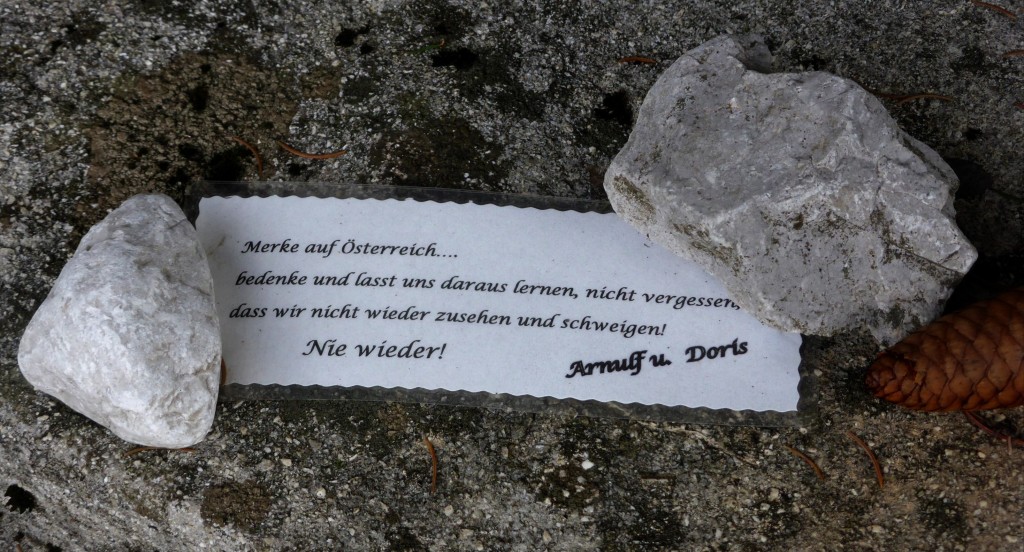 Merke auf Österreich....
bedenke und lasst uns daraus lernen, nicht vergessen,
dass wir nicht wieder zusehen und schweigen!
Nie wieder!
Arnulf u. Doris